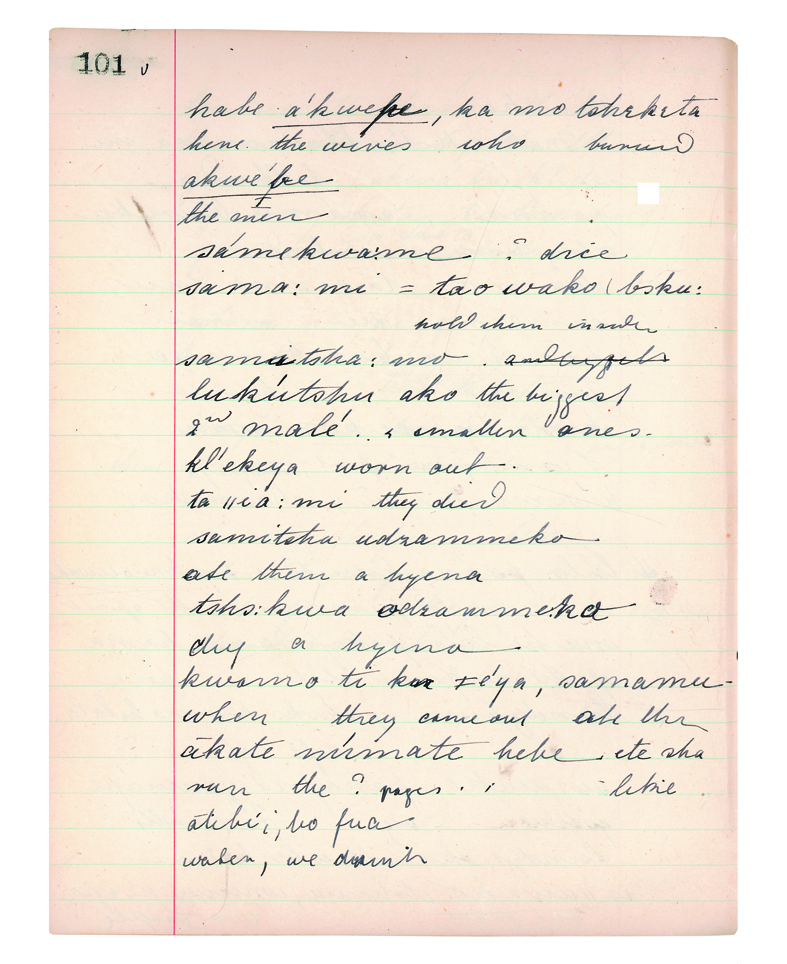 101 v
habe á'kwepe, ka mo tsheketa
here. the wives who buried
akwé'pe
the men
sámekwa:me ? dice
sama: mi = tao wako ( bsku:
hold them in
samitsha: mo.
lukútshu ako the biggest
2nd malé .. smaller ones.
kl'ekeya worn out.
ta ||ia: mi they died
samitsha udzammeko
ate them a hyena
tshs:kwa odzammeko
dry a hyena
kwomo ti ǂéya, samamu-
when they come out ate the
ākate númate hebe. ete sha
run the ? pages. like
atibi;, bo fua
water, we drink